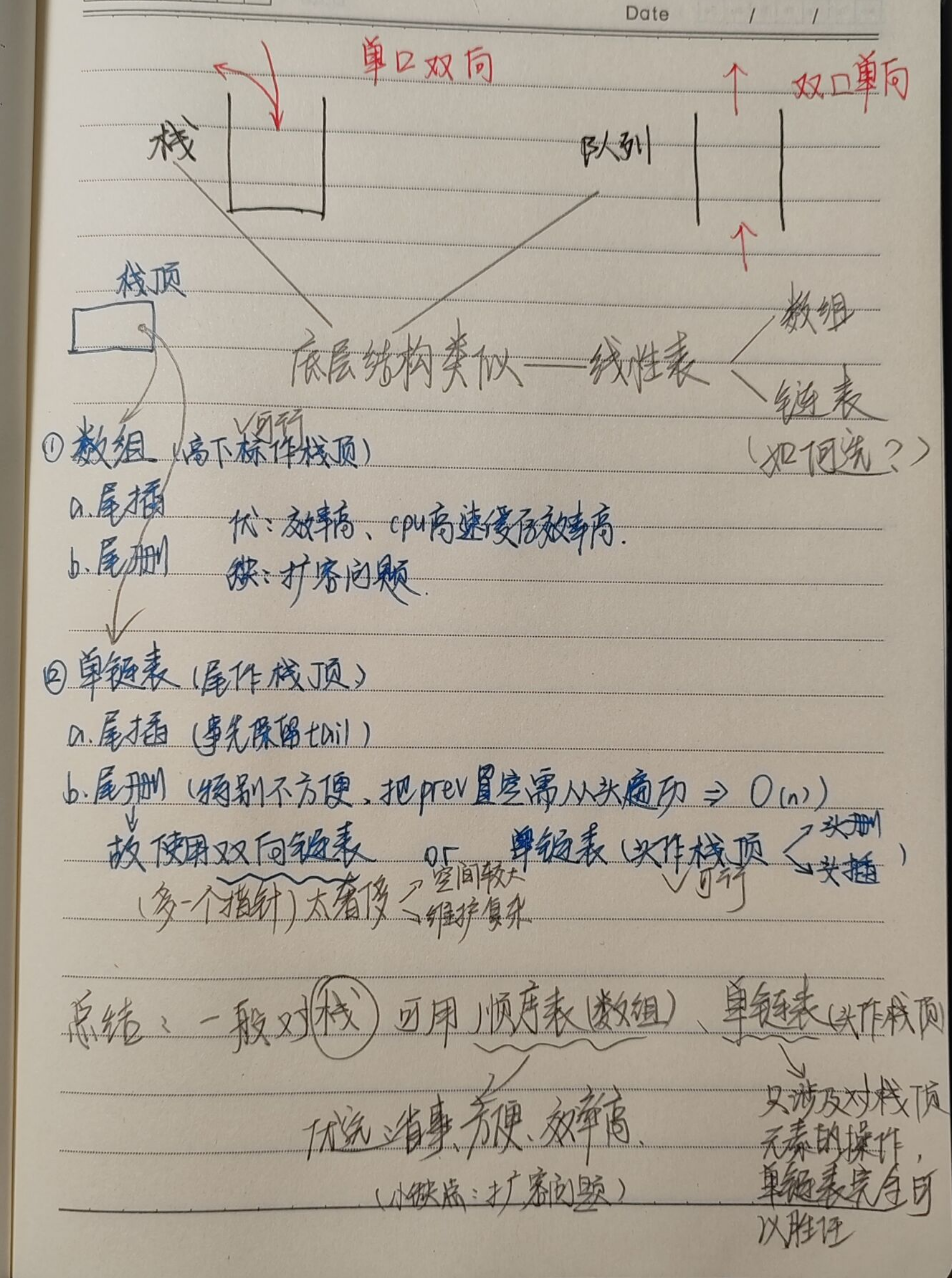 Date / /
单口双向
双口单向
栈
队列
栈顶
底层结构类似——线性表
数组
链表
(如何选?)
✓可行
① 数组 (高下标作栈顶)
a. 尾插
b. 尾删
优: 效率高、cpu高速缓存效率高.
缺: 扩容问题.
② 单链表 (尾作栈顶)
a. 尾插 (事先保留tail)
b. 尾删 (特别不方便、把prev置空需从头遍历 ⇒ O(n))
故使用双向链表 or 单链表 (头作栈顶
头删
头插
)
(多一个指针) 太奢侈
空间较大
维护复杂
✓可行
总结: 一般对栈可用顺序表(数组)、单链表(头作栈顶)
优选: 省事、方便、效率高.
(小缺点: 扩容问题)
只涉及对栈顶
元素的操作,
单链表完全可
以胜任